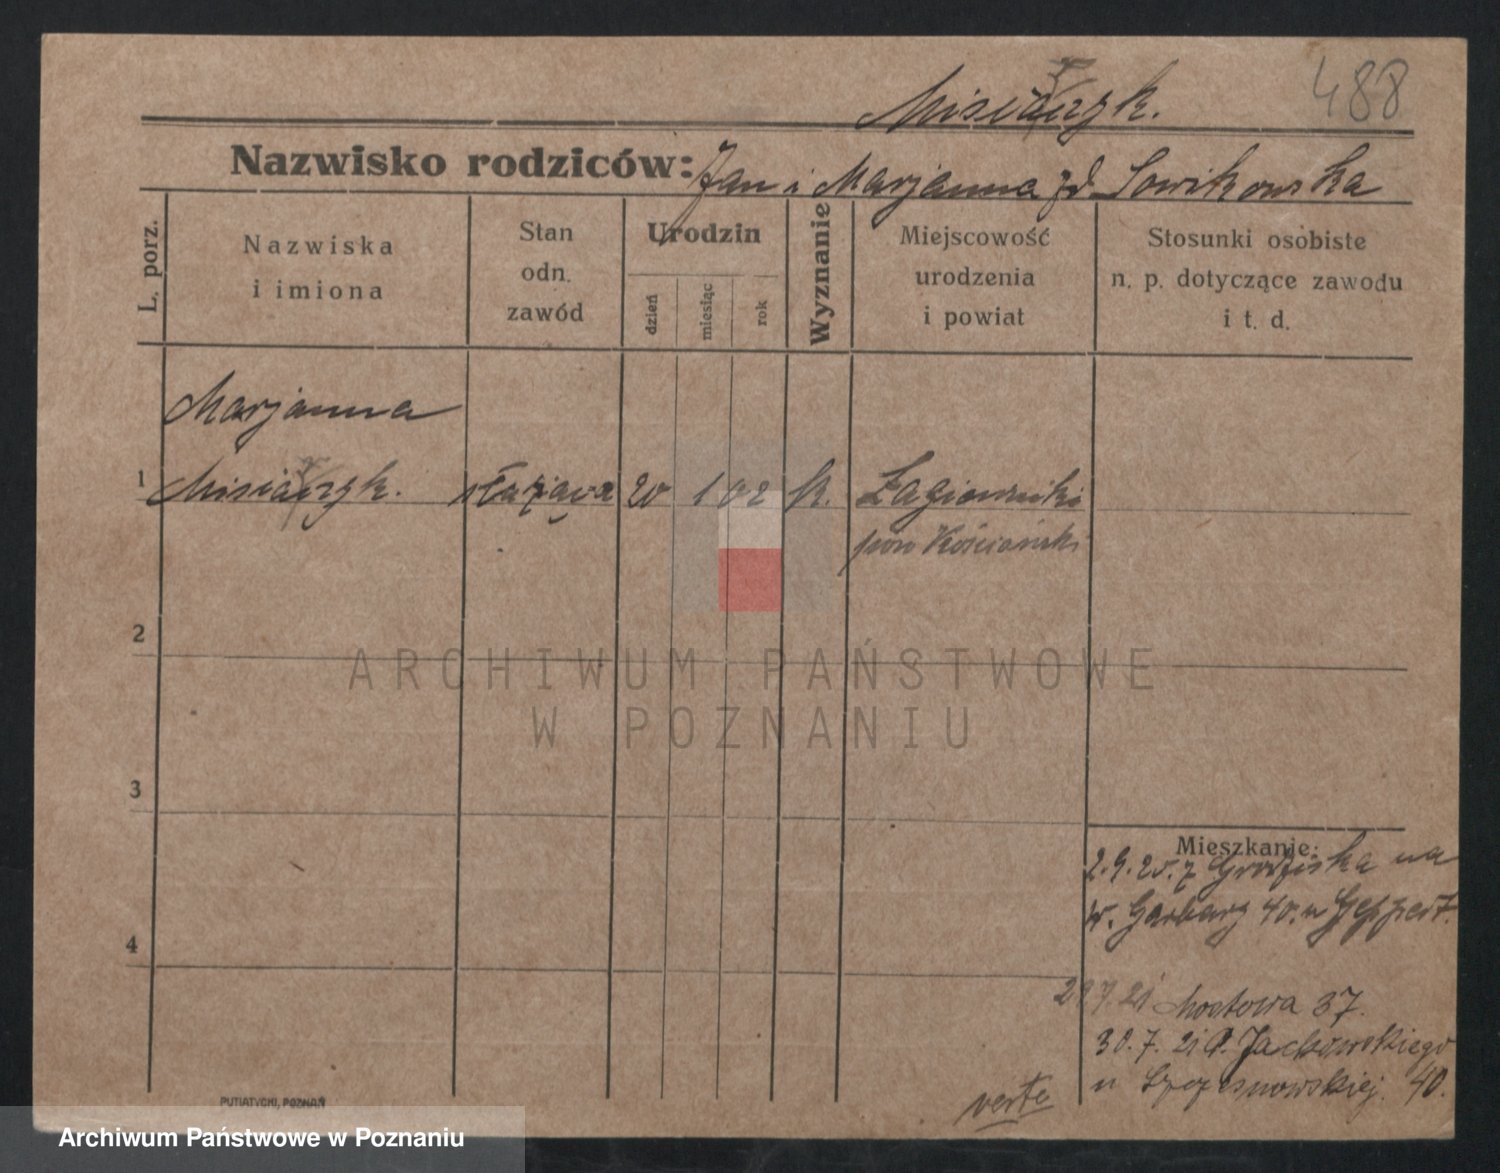 488
Misiaczyk.
Nazwisko rodziców: Jan i Marjanna zd Sowikowska
L. porz.
Nazwiska
i imiona
Stan
odn.
zawód
Urodzin
dzień
miesiąc
rok
Wyznanie
Miejscowość
urodzenia
i powiat
Stosunki osobiste
n. p. dotyczące zawodu
i t. d.
Marjanna
1 Misiaczyk. służąca 20 1 02 k. Łagiewniki
pow Kościański
2
ARCHIWUM PAŃSTWOWE
W POZNANIU
3
Mieszkanie:
2.9.20. z Grodziska na
W. Garbary 40. u
4
29.7.21 Mostowa 37.
30.7.21 P. Jackowskiego
u Szczesnowskiej. 40.
verte
PUTIATYCKI, POZNAŃ
Archiwum Państwowe w Poznaniu